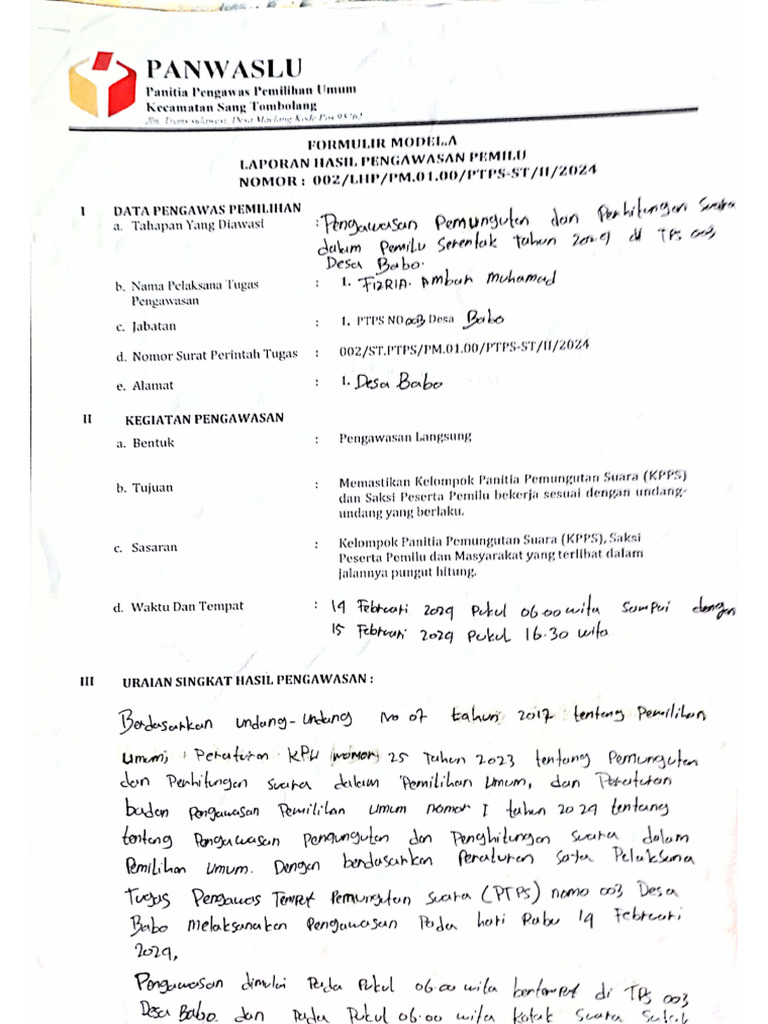 PANWASLU
Panitia Pengawas Pemilihan Umum
Kecamatan Sang Tombolang
Jln. Trans sulawesi, Desa Maelang Kode Pos 95762
FORMULIR MODEL.A
LAPORAN HASIL PENGAWASAN PEMILU
NOMOR : 002/LHP/PM.01.00/PTPS-ST/II/2024
I DATA PENGAWAS PEMILIHAN
a. Tahapan Yang Diawasi : Pengawasan Pemungutan dan Perhitungan Suara
dalam Pemilu Serentak tahun 2024 di TPS 003
Desa Babo.
b. Nama Pelaksana Tugas Pengawasan : 1. FIZRIA. Ambah Muhamad
c. Jabatan : 1. PTPS NO 003 Desa Babo
d. Nomor Surat Perintah Tugas : 002/ST.PTPS/PM.01.00/PTPS-ST/II/2024
e. Alamat : 1. Desa Babo
II KEGIATAN PENGAWASAN
a. Bentuk : Pengawasan Langsung
b. Tujuan : Memastikan Kelompok Panitia Pemungutan Suara (KPPS)
dan Saksi Peserta Pemilu bekerja sesuai dengan undang-
undang yang berlaku.
c. Sasaran : Kelompok Panitia Pemungutan Suara (KPPS), Saksi
Peserta Pemilu dan Masyarakat yang terlibat dalam
jalannya pungut hitung.
d. Waktu Dan Tempat : 14 Februari 2024 Pukul 06.00 wita Sampai dengan
15 Februari 2024 Pukul 16.30 wita
III URAIAN SINGKAT HASIL PENGAWASAN :
Berdasarkan undang-undang No 07 tahun 2017 tentang Pemilihan
Umum, Peraturan KPU nomor 25 Tahun 2023 tentang Pemungutan
dan Perhitungan suara dalam Pemilihan Umum, dan Peraturan
badan Pengawasan Pemilihan Umum nomor 1 tahun 2024 tentang
tentang Pengawasan Pengungutan dan Penghitungan suara dalam
Pemilihan Umum. Dengan berdasarkan Peraturan saya Pelaksana
Tugas Pengawas Tempat Pemungutan suara (PTPS) nomo 003 Desa
Babo melaksanakan Pengawasan Pada hari Rabu 14 Februari
2024,
Pengawasan dimulai Pada Pukul 06.00 wita bertempat di TPS 003
Desa Babo. dan Pada Pukul 06.00 wita Kotak Suara